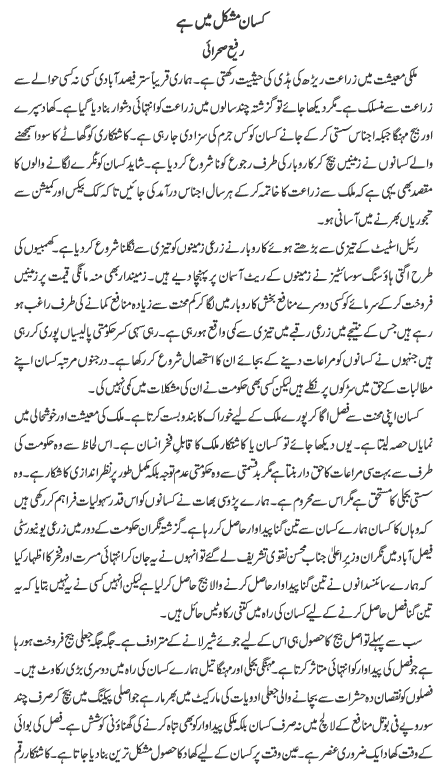 کسان مشکل میں ہے
رفیع صحرائی
ملکی معیشت میں زراعت ریڑھ کی ہڈی کی حیثیت رکھتی ہے۔ ہماری تقریباً ستر فیصد آبادی کسی نہ کسی حوالے سے
زراعت سے منسلک ہے۔ مگر دیکھا جائے تو گزشتہ چند سالوں میں زراعت کو انتہائی دشوار بنا دیا گیا ہے۔ کھاد سپرے
اور بیج مہنگا جبکہ اجناس سستی کر کے جانے کسان کو کس جرم کی سزا دی جا رہی ہے۔ کاشتکاری کو گھاٹے کا سودا سمجھنے
والے کسانوں نے زمینیں بیچ کر کاروبار کی طرف رجوع کرنا شروع کر دیا ہے۔ شاید کسان کو نکرے لگانے والوں کا
مقصد بھی یہی ہے کہ ملک سے زراعت کا خاتمہ کر کے ہر سال اجناس درآمد کی جائیں تاکہ کک بیکس اور کمیشن سے
تجوریاں بھرنے میں آسانی ہو۔
رئیل اسٹیٹ کے تیزی سے بڑھتے ہوئے کاروبار نے زرعی زمینوں کو تیزی سے نگلنا شروع کر دیا ہے۔ کھمبیوں کی
طرح اگتی ہاؤسنگ سوسائٹیز نے زمینوں کے ریٹ آسمان پر پہنچا دیے ہیں۔ زمیندار بھی منہ مانگی قیمت پر زمینیں
فروخت کر کے سرمائے کو کسی دوسرے منافع بخش کاروبار میں لگا کر کم محنت سے زیادہ منافع کمانے کی طرف راغب ہو
رہے ہیں جس کے نتیجے میں زرعی رقبے میں تیزی سے کمی واقع ہو رہی ہے۔ رہی سہی کسر حکومتی پالیسیاں پوری کر رہی
ہیں جنہوں نے کسانوں کو مراعات دینے کے بجائے ان کا استحصال شروع کر رکھا ہے۔ درجنوں مرتبہ کسان اپنے
مطالبات کے حق میں سڑکوں پر نکلے ہیں لیکن کسی بھی حکومت نے ان کی مشکلات میں کمی نہیں کی۔
کسان اپنی محنت سے فصل اگا کر پورے ملک کے لیے خوراک کا بندوبست کرتا ہے۔ ملک کی معیشت اور خوشحالی میں
نمایاں حصہ لیتا ہے۔ یوں دیکھا جائے تو کسان یا کاشتکار ملک کا قابلِ فخر انسان ہے۔ اس لحاظ سے وہ حکومت کی
طرف سے بہت سی مراعات کا حق دار بنتا ہے مگر بدقسمتی سے وہ حکومتی عدم توجہ بلکہ مکمل طور پر نظر اندازی کا شکار ہے۔ وہ
سستی بجلی کا مستحق ہے مگر اس سے محروم ہے۔ ہمارے پڑوسی بھات نے کسانوں کو اس قدر سہولیات فراہم کر رکھی ہیں
کہ وہاں کا کسان ہمارے کسان سے تین گنا پیداوار حاصل کر رہا ہے۔ گزشتہ نگران حکومت کے دور میں زرعی یونیورسٹی
فیصل آباد میں نگران وزیرِ اعلیٰ جناب محسن نقوی تشریف لے گئے تو انہوں نے یہ جان کر انتہائی مسرت اور فخر کا اظہار کیا
کہ ہمارے سائنسدانوں نے تین گنا پیداوار حاصل کرنے والا بیج حاصل کر لیا ہے لیکن انہیں کسی نے یہ نہیں بتایا کہ یہ
تین گنا فصل حاصل کرنے کے لیے کسان کی راہ میں کتنی رکاوٹیں حائل ہیں۔
سب سے پہلے تو اصل بیج کا حصول ہی اس کے لیے جوئے شیر لانے کے مترادف ہے۔ جگہ جگہ جعلی بیج فروخت ہو رہا
ہے جو فصل کی پیداوار کو انتہائی متاثر کرتا ہے۔ مہنگی بجلی اور مہنگا تیل ہمارے کسان کی راہ میں دوسری بڑی رکاوٹ ہیں۔
فصلوں کو نقصان دہ حشرات سے بچانے والی جعلی ادویات کی مارکیٹ میں بھر مار ہے جو اصلی پیکنگ میں بیچ کر صرف چند
سو روپے فی بوتل منافع کے لالچ میں نہ صرف کسان بلکہ ملکی پیداوار کو بھی تباہ کرنے کی گھناؤنی کوشش ہے۔ فصل کی بوائی
کے وقت کھاد ایک ضروری عنصر ہے۔ عین وقت پر کسان کے لیے کھاد کا حصول مشکل ترین بنا دیا جاتا ہے۔ کاشتکار رقم